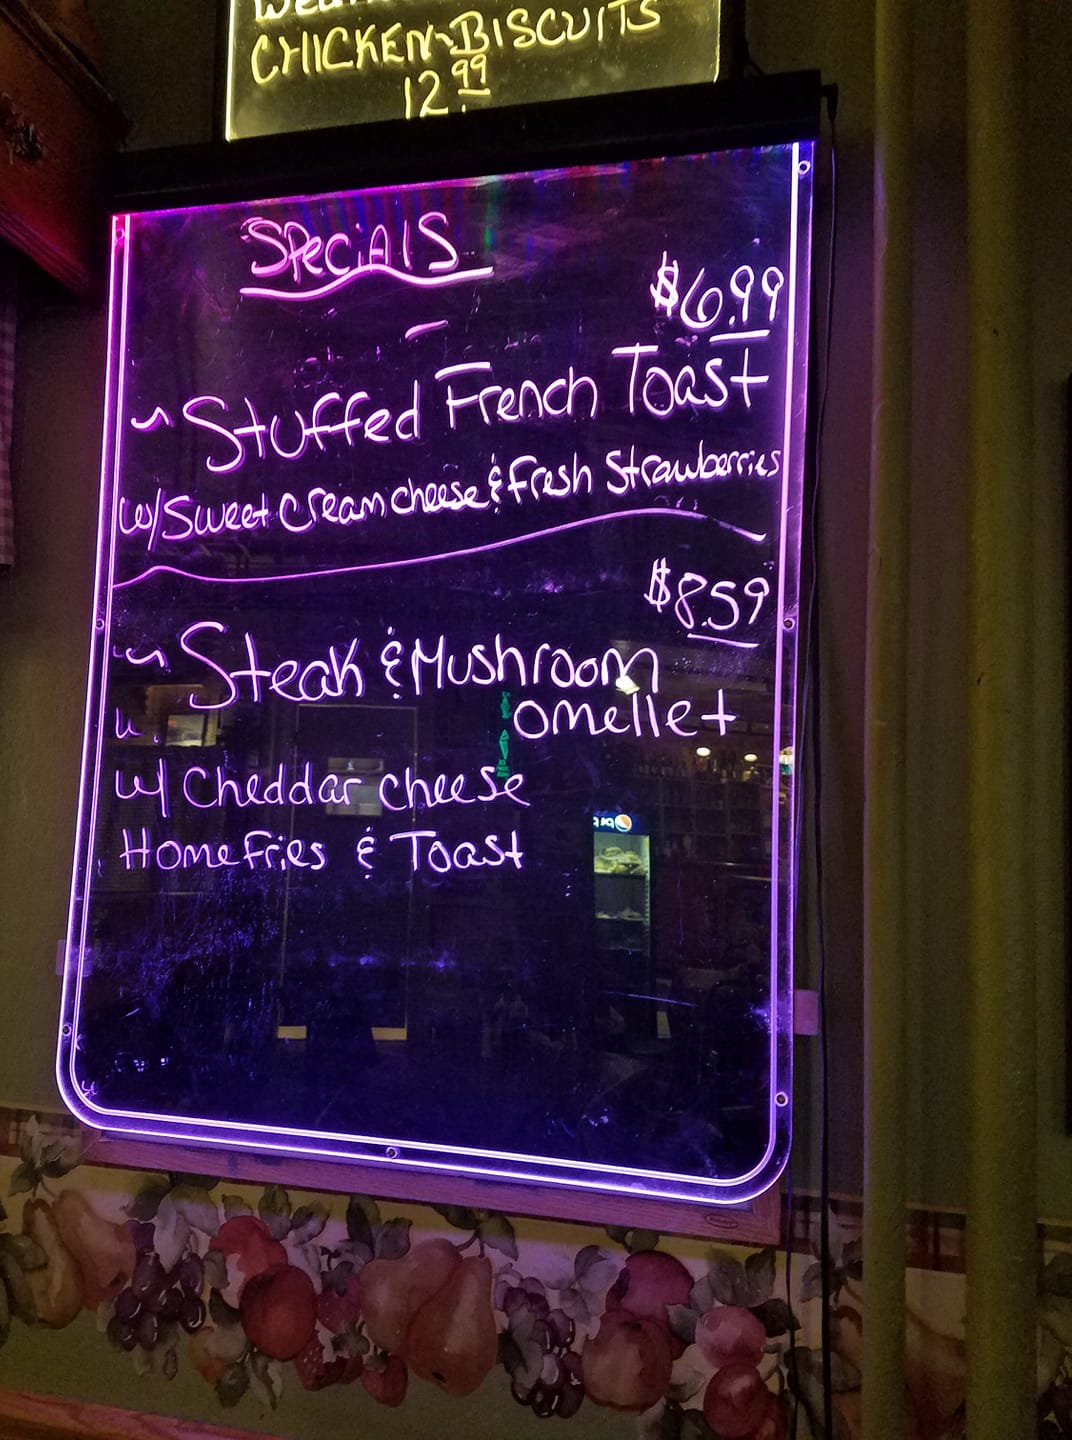 CHICKEN-BISCUITS
12.99
SPeciAlS
$6.99
~ Stuffed French Toast
w/Sweet Cream cheese & Fresh Strawberries
$8.59
~ Steak & Mushroom
omellet
w/ Cheddar cheese
Home Fries & Toast